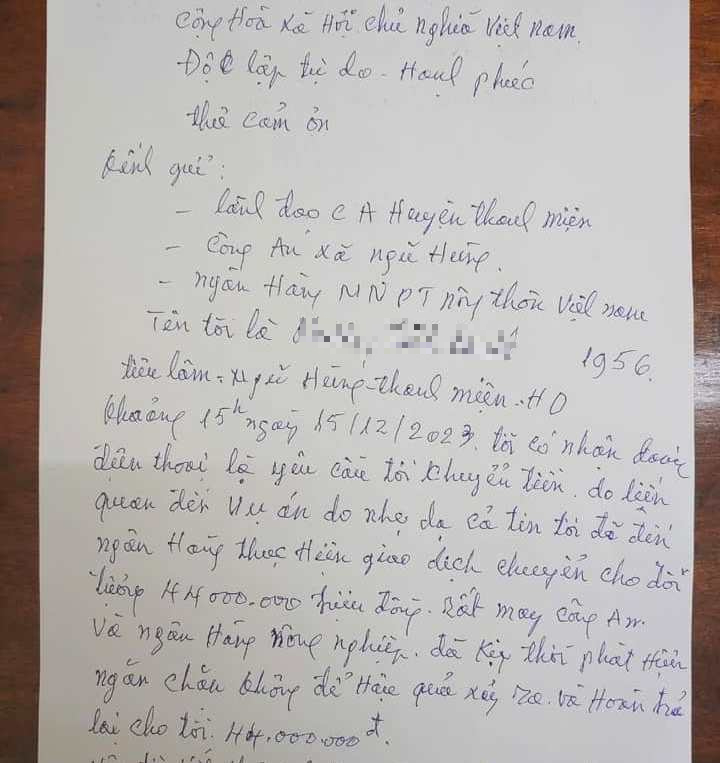 Cộng Hoà Xã Hội chủ nghĩa Việt Nam
Độc lập tự do - Hạnh phúc
thư cảm ơn
Kính gửi:
- lãnh đạo C A Huyện thanh miện
- Công An xã ngũ Hùng.
- ngân Hàng NN PT nông thôn Việt nam
Tên tôi là 1956.
tiêu lâm - ngũ Hùng - thanh miện - HD
khoảng 15h ngày 15/12/2023. tôi có nhận được
điện thoại lạ yêu cầu tôi chuyển tiền. do liên
quan đến vụ án do nhẹ dạ cả tin tôi đã đến
ngân Hàng thực Hiện giao dịch chuyển cho đối
tượng 44 000.000 triệu đồng. Rất may công An.
Và ngân Hàng nông nghiệp. đã kịp thời phát Hiện
ngăn chặn không để Hậu quả xảy ra. và Hoàn trả
lại cho tôi. 44.000.000đ.